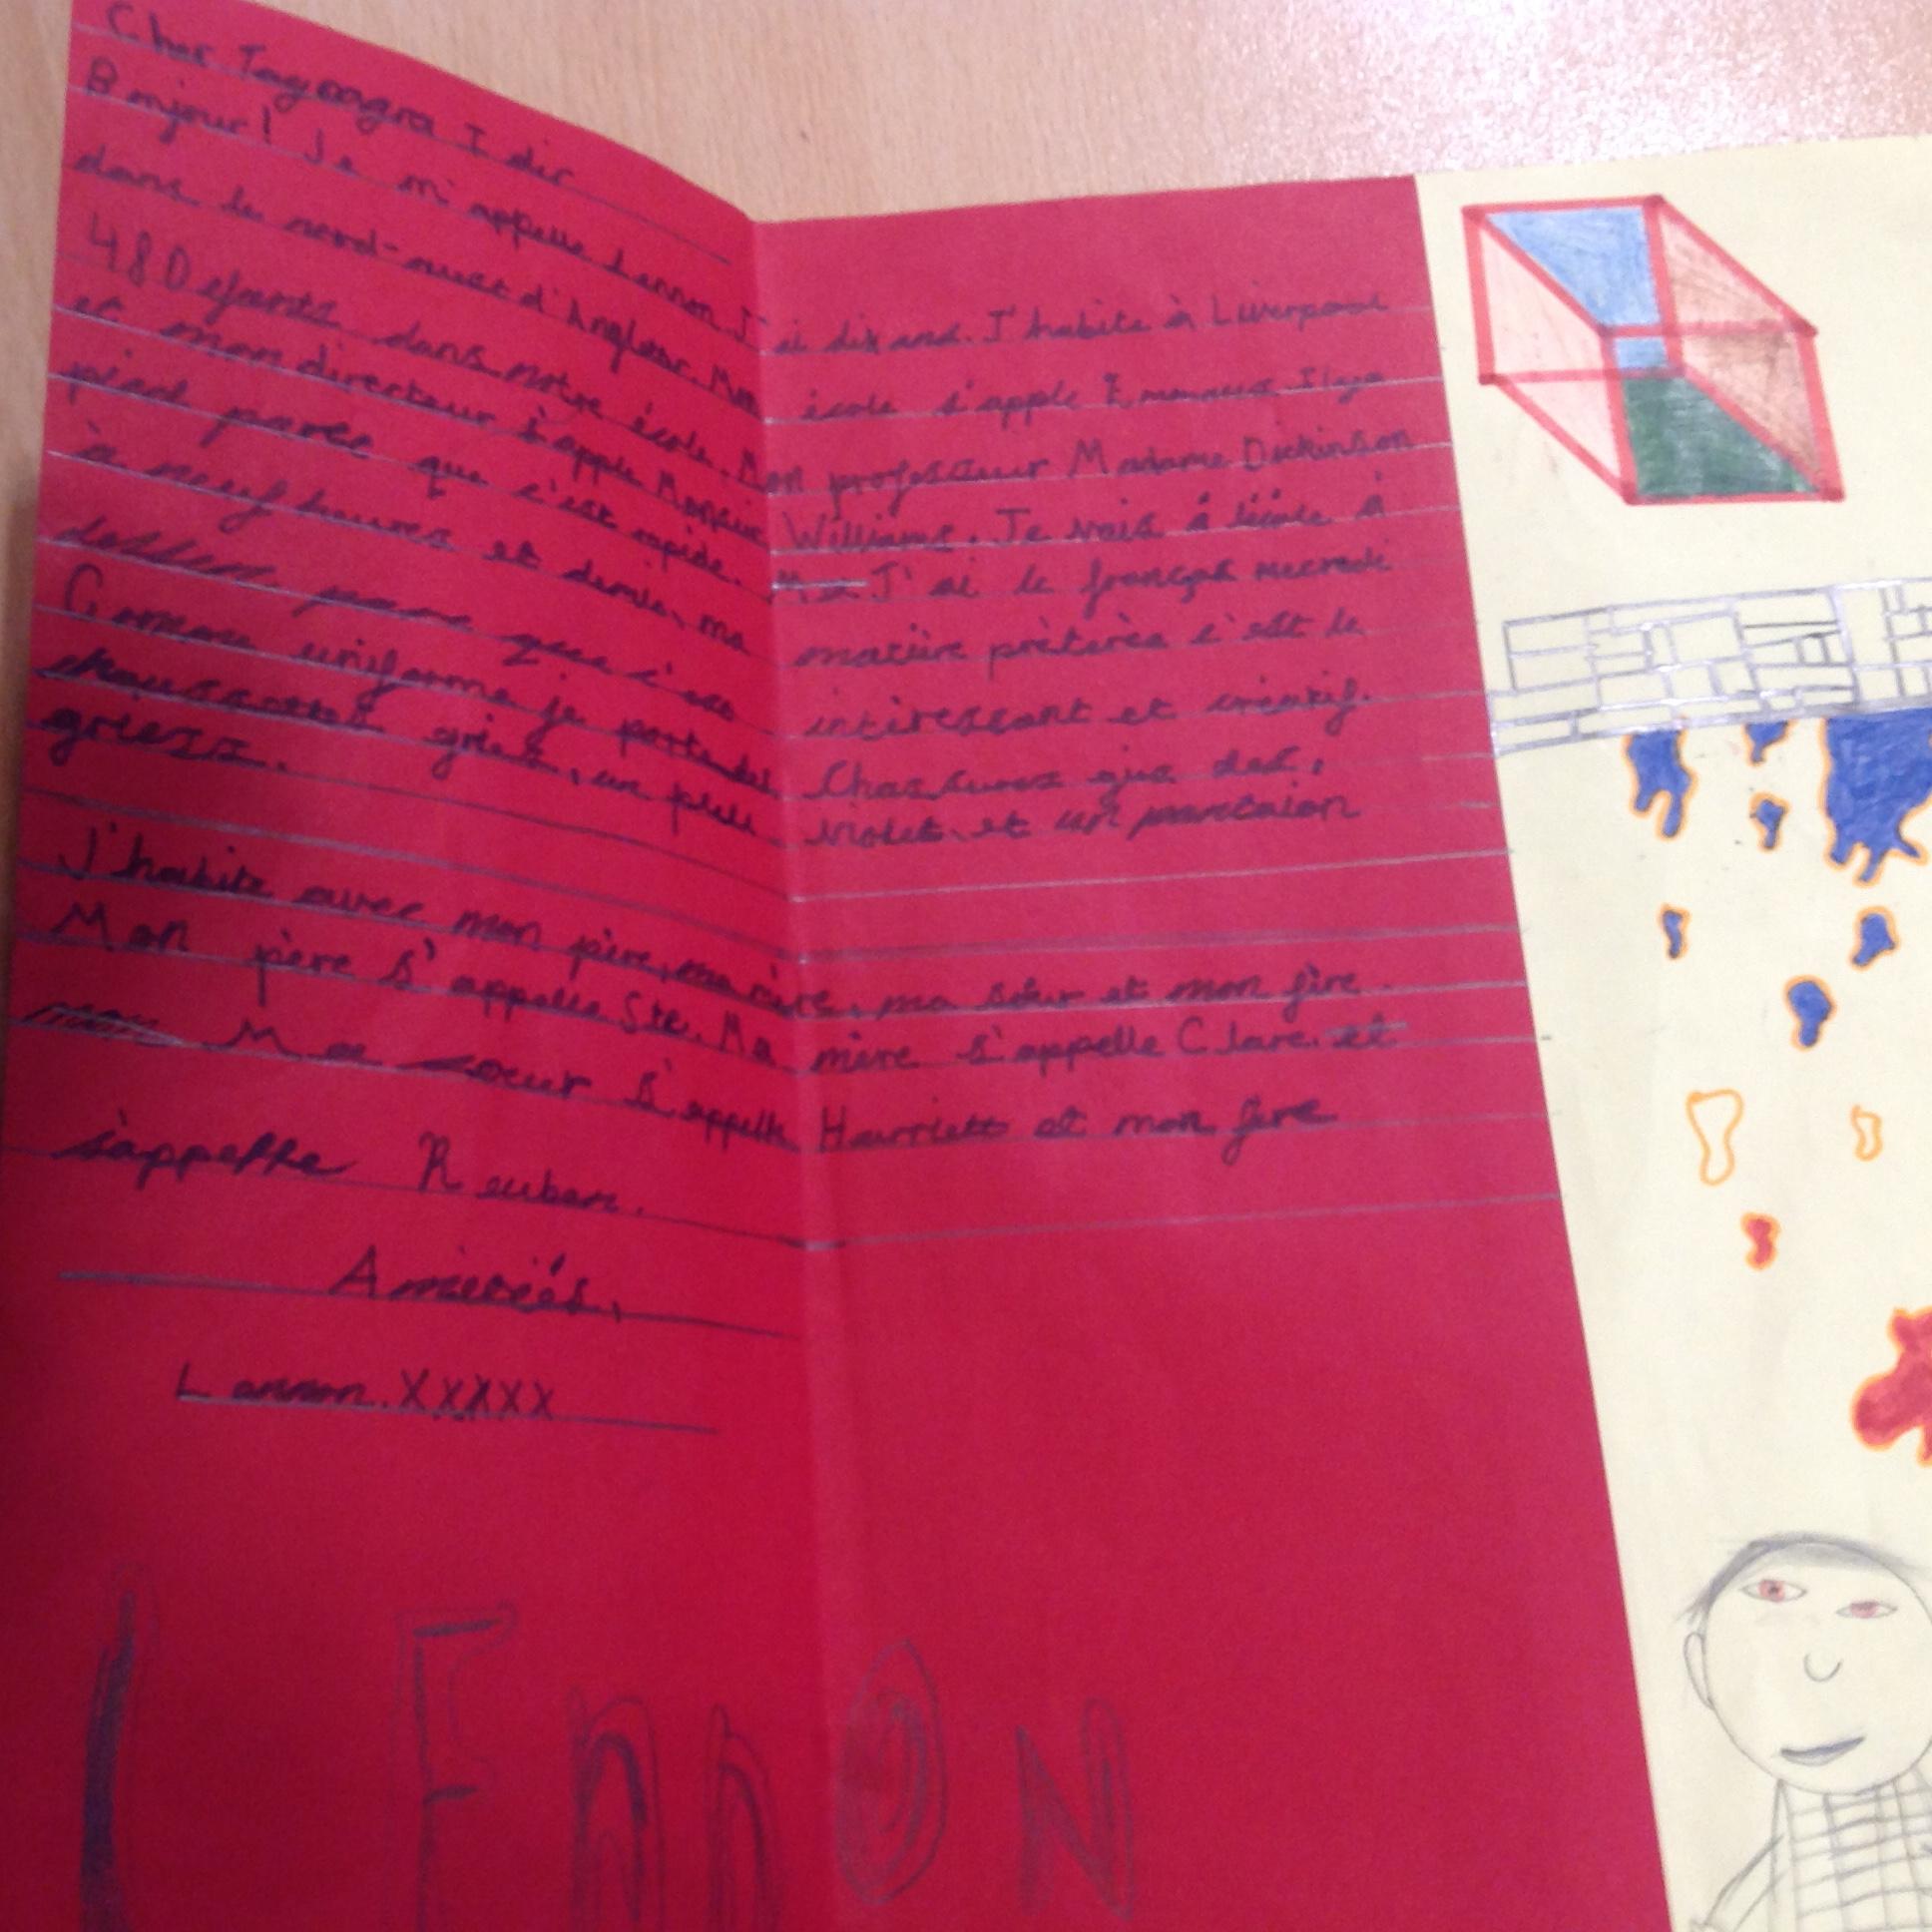 Cher
Bonjour! Je m'appelle Lennon J'ai dix ans. J'habite à Liverpool
dans le nord-ouest d'Angleter. Mon école s'apple Emmaus Ilya
480 efants dans notre école. Mon professeur Madame Dickinson
et mon directeur s'apple Monsiur Williams. Je vais á l'école á
pied parce que c'est rapide. J'ai le françes mecredi
à neuf heures et demie, ma matière prèfèrèe c'est le
dessin parce que c'est intèressant et crèatif.
Comme uniforme je porte des Chassures gis des,
chaussettes gries, un pull violet et un pantalon
griess.
J'habite avec mon père, ma mère, ma sœur et mon fère.
Mon père s'appelle Ste. Ma mère s'appelle Clare. et
Ma soeur s'appelle Harriett et mon fère
s'appelle Reuben.
Amitiés,
Lennon. XXXXX
LEnnON